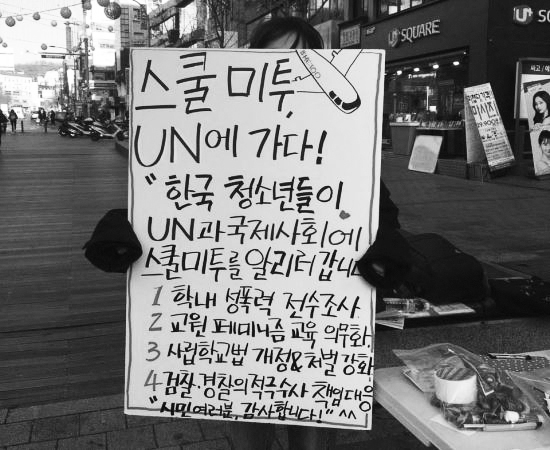 스쿨 미투,
UN에 가다!
"한국 청소년들이
UN과 국제사회에
스쿨미투를 알리러 갑니다
1 학내 성폭력 전수조사
2 교원 페미니즘 교육 의무화
3 사립학교법 개정&처벌 강화
4 검찰·경찰의 적극수사 책임대응
"시민여러분, 감사합니다!" ^^
U+ SQUARE
U+